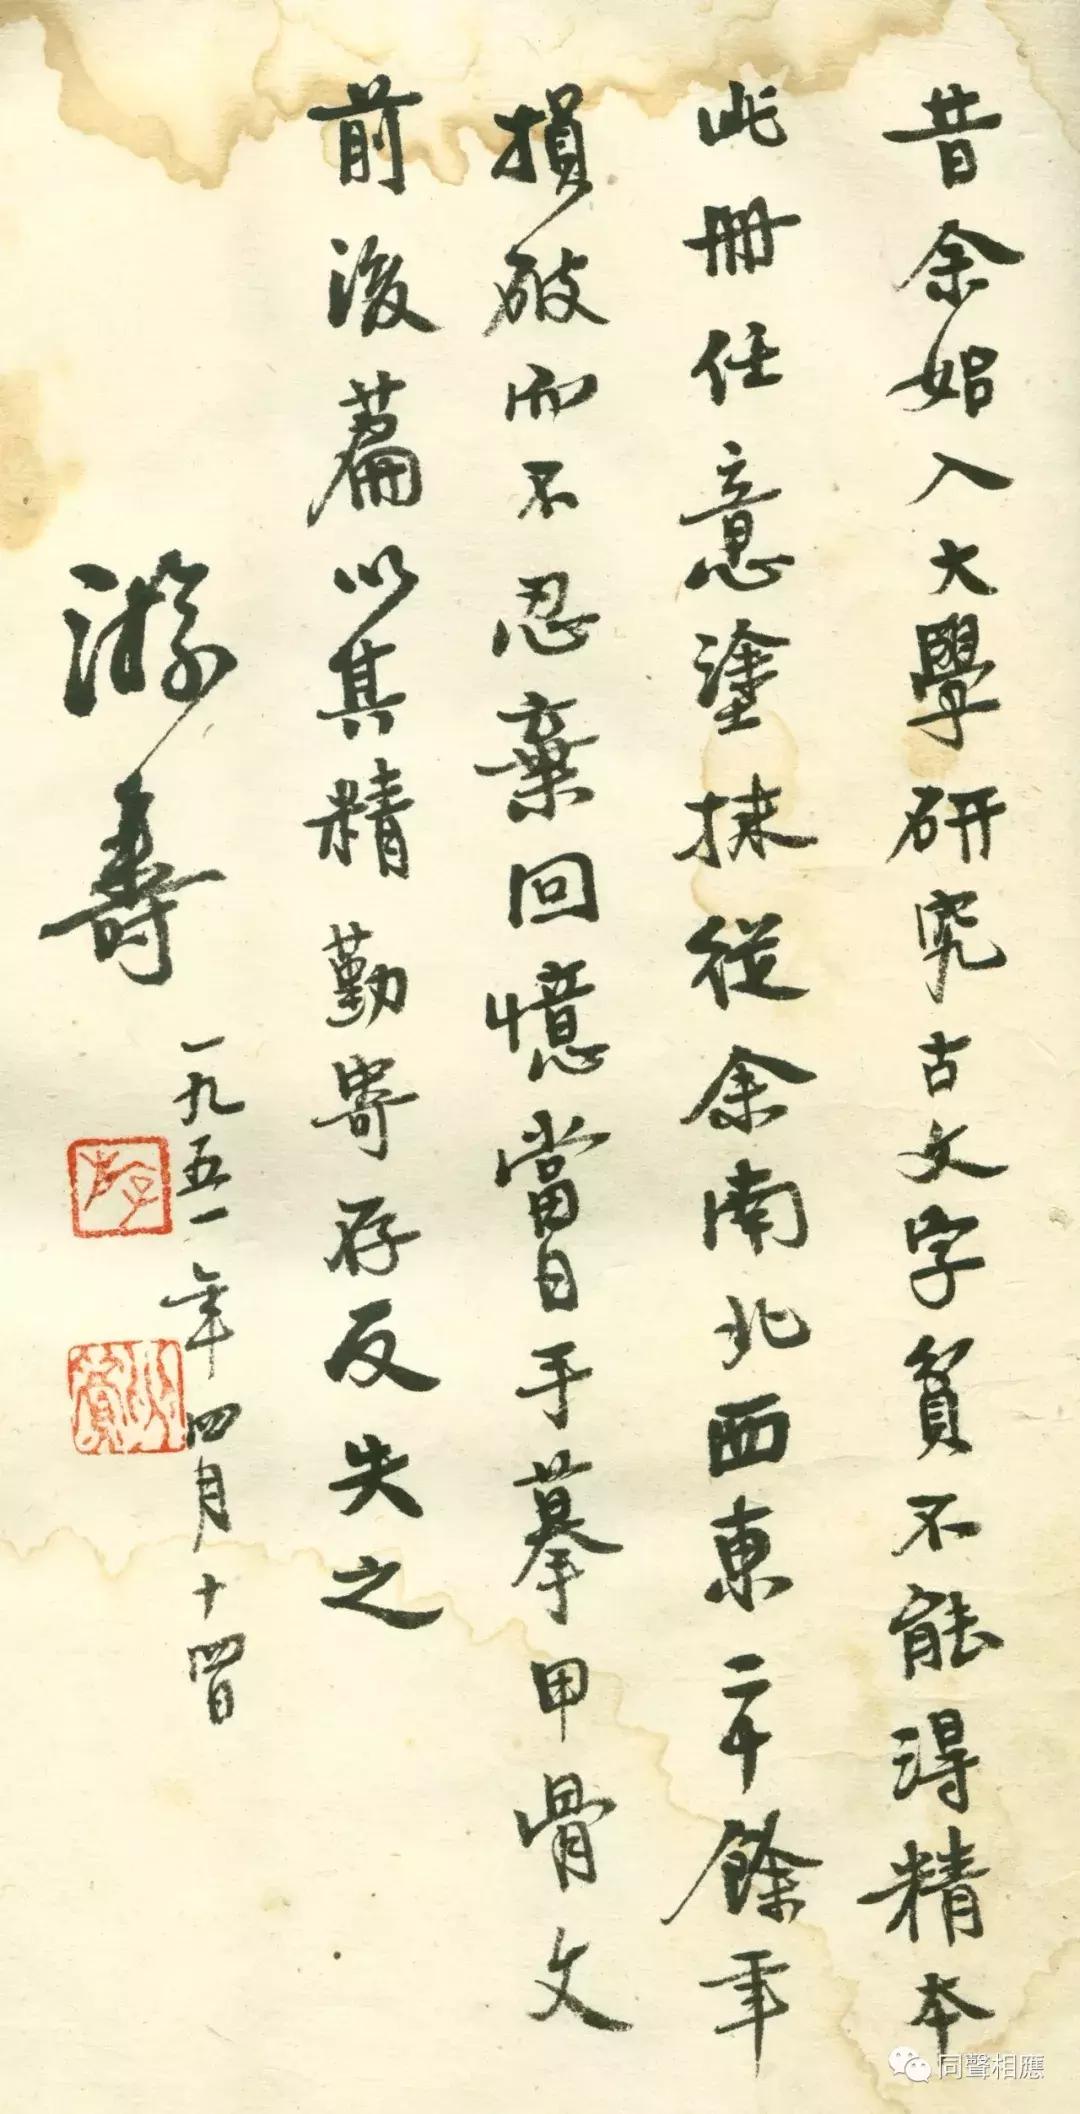 昔余始入大學研究古文字貧不能得精本
此冊任意塗抹從余南北西東二十餘年
損破而不忍棄回憶當日手摹甲骨文
前後篇以其精勤寄存反失之
游壽
一九五一年四月十四日
同聲相應